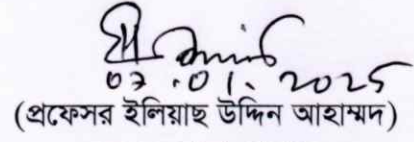 07.01.2025
(প্রফেসর ইলিয়াছ উদ্দিন আহাম্মদ)